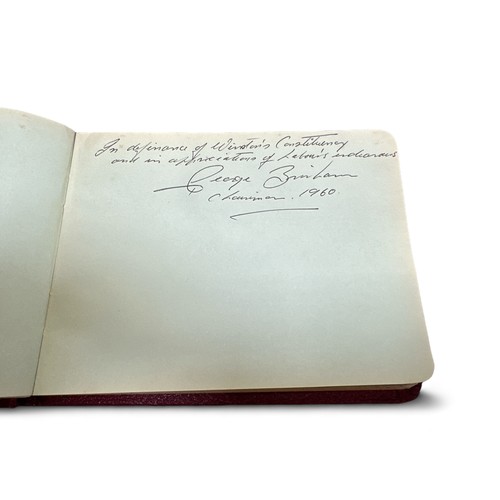 In defiance of Winston's Constituency
and in appreciation of Labour's endeavours
George
Chairman. 1960.